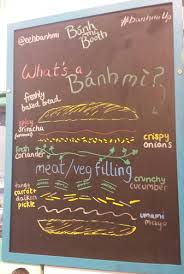 @eehbanhmi
Bánh
mì
Booth
#banhmiUp
What's a
Bánh mì?
freshly
baked bread
spicy
sriracha
crispy
onions
fresh
coriander
meat/veg filling
crunchy
cucumber
tangy
carrot
daikon
pickle
umami
mayo